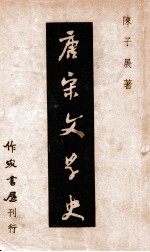 陳子展著
唐宋文學史
作家書屋刊行